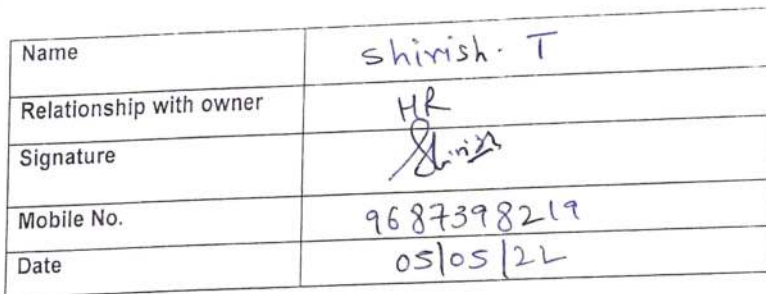 Name shirish. T
Relationship with owner HR
Signature Shirish
Mobile No. 9687398219
Date 05/05/22